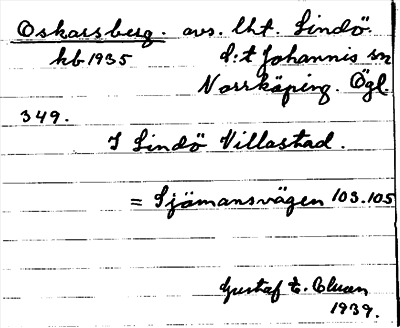 Oskarsberg. avs. lht. Lindö.
kb 1935 S:t Johannis sn
Norrköping. Ögl.
349.
I Lindö Villastad.
= Sjömansvägen 103.105
Gustaf E.
1939.